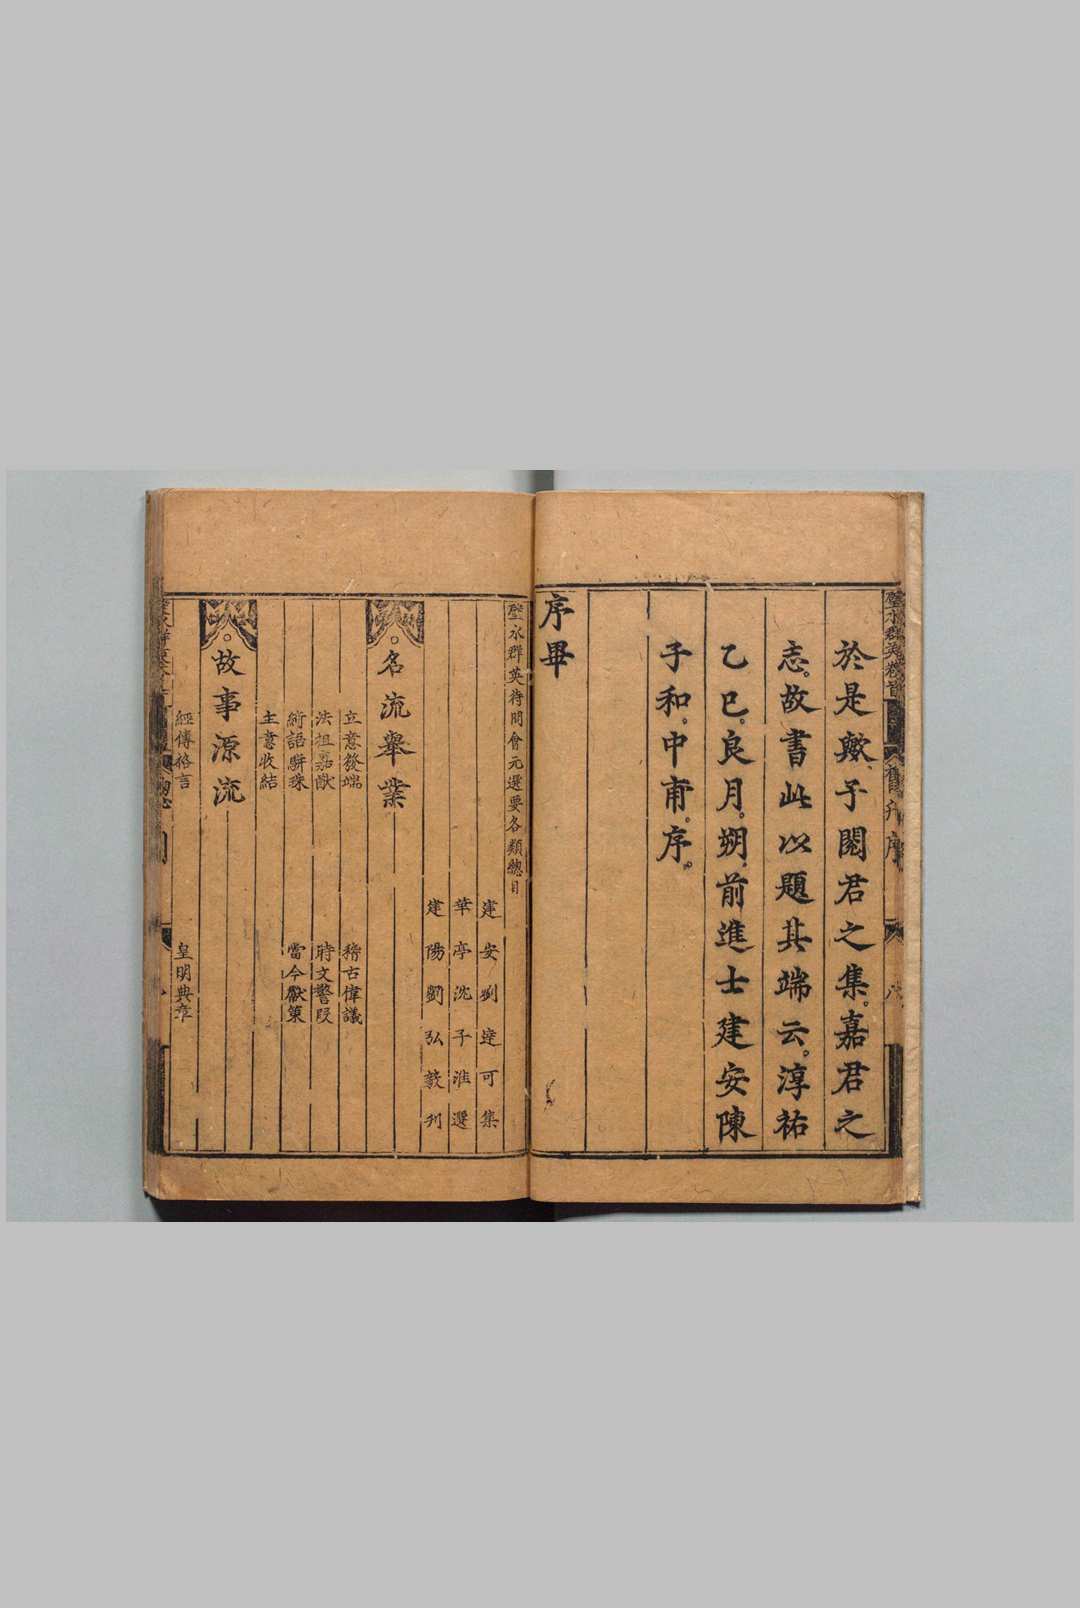 於是歟予閱君之集嘉君之
志故書此以題其端云淳祐
乙巳良月朔前進士建安陳
子和中甫序
序畢
璧水群英待問會元選要各類總目
建安劉達可集
華亭沈子淮選
建陽劉弘毅刊
名流舉業
立意發端 稽古偉議
法祖嘉猷 時文警段
綺語駢珠 當今獻策
主意收結
故事源流
經傳格言 皇明典章